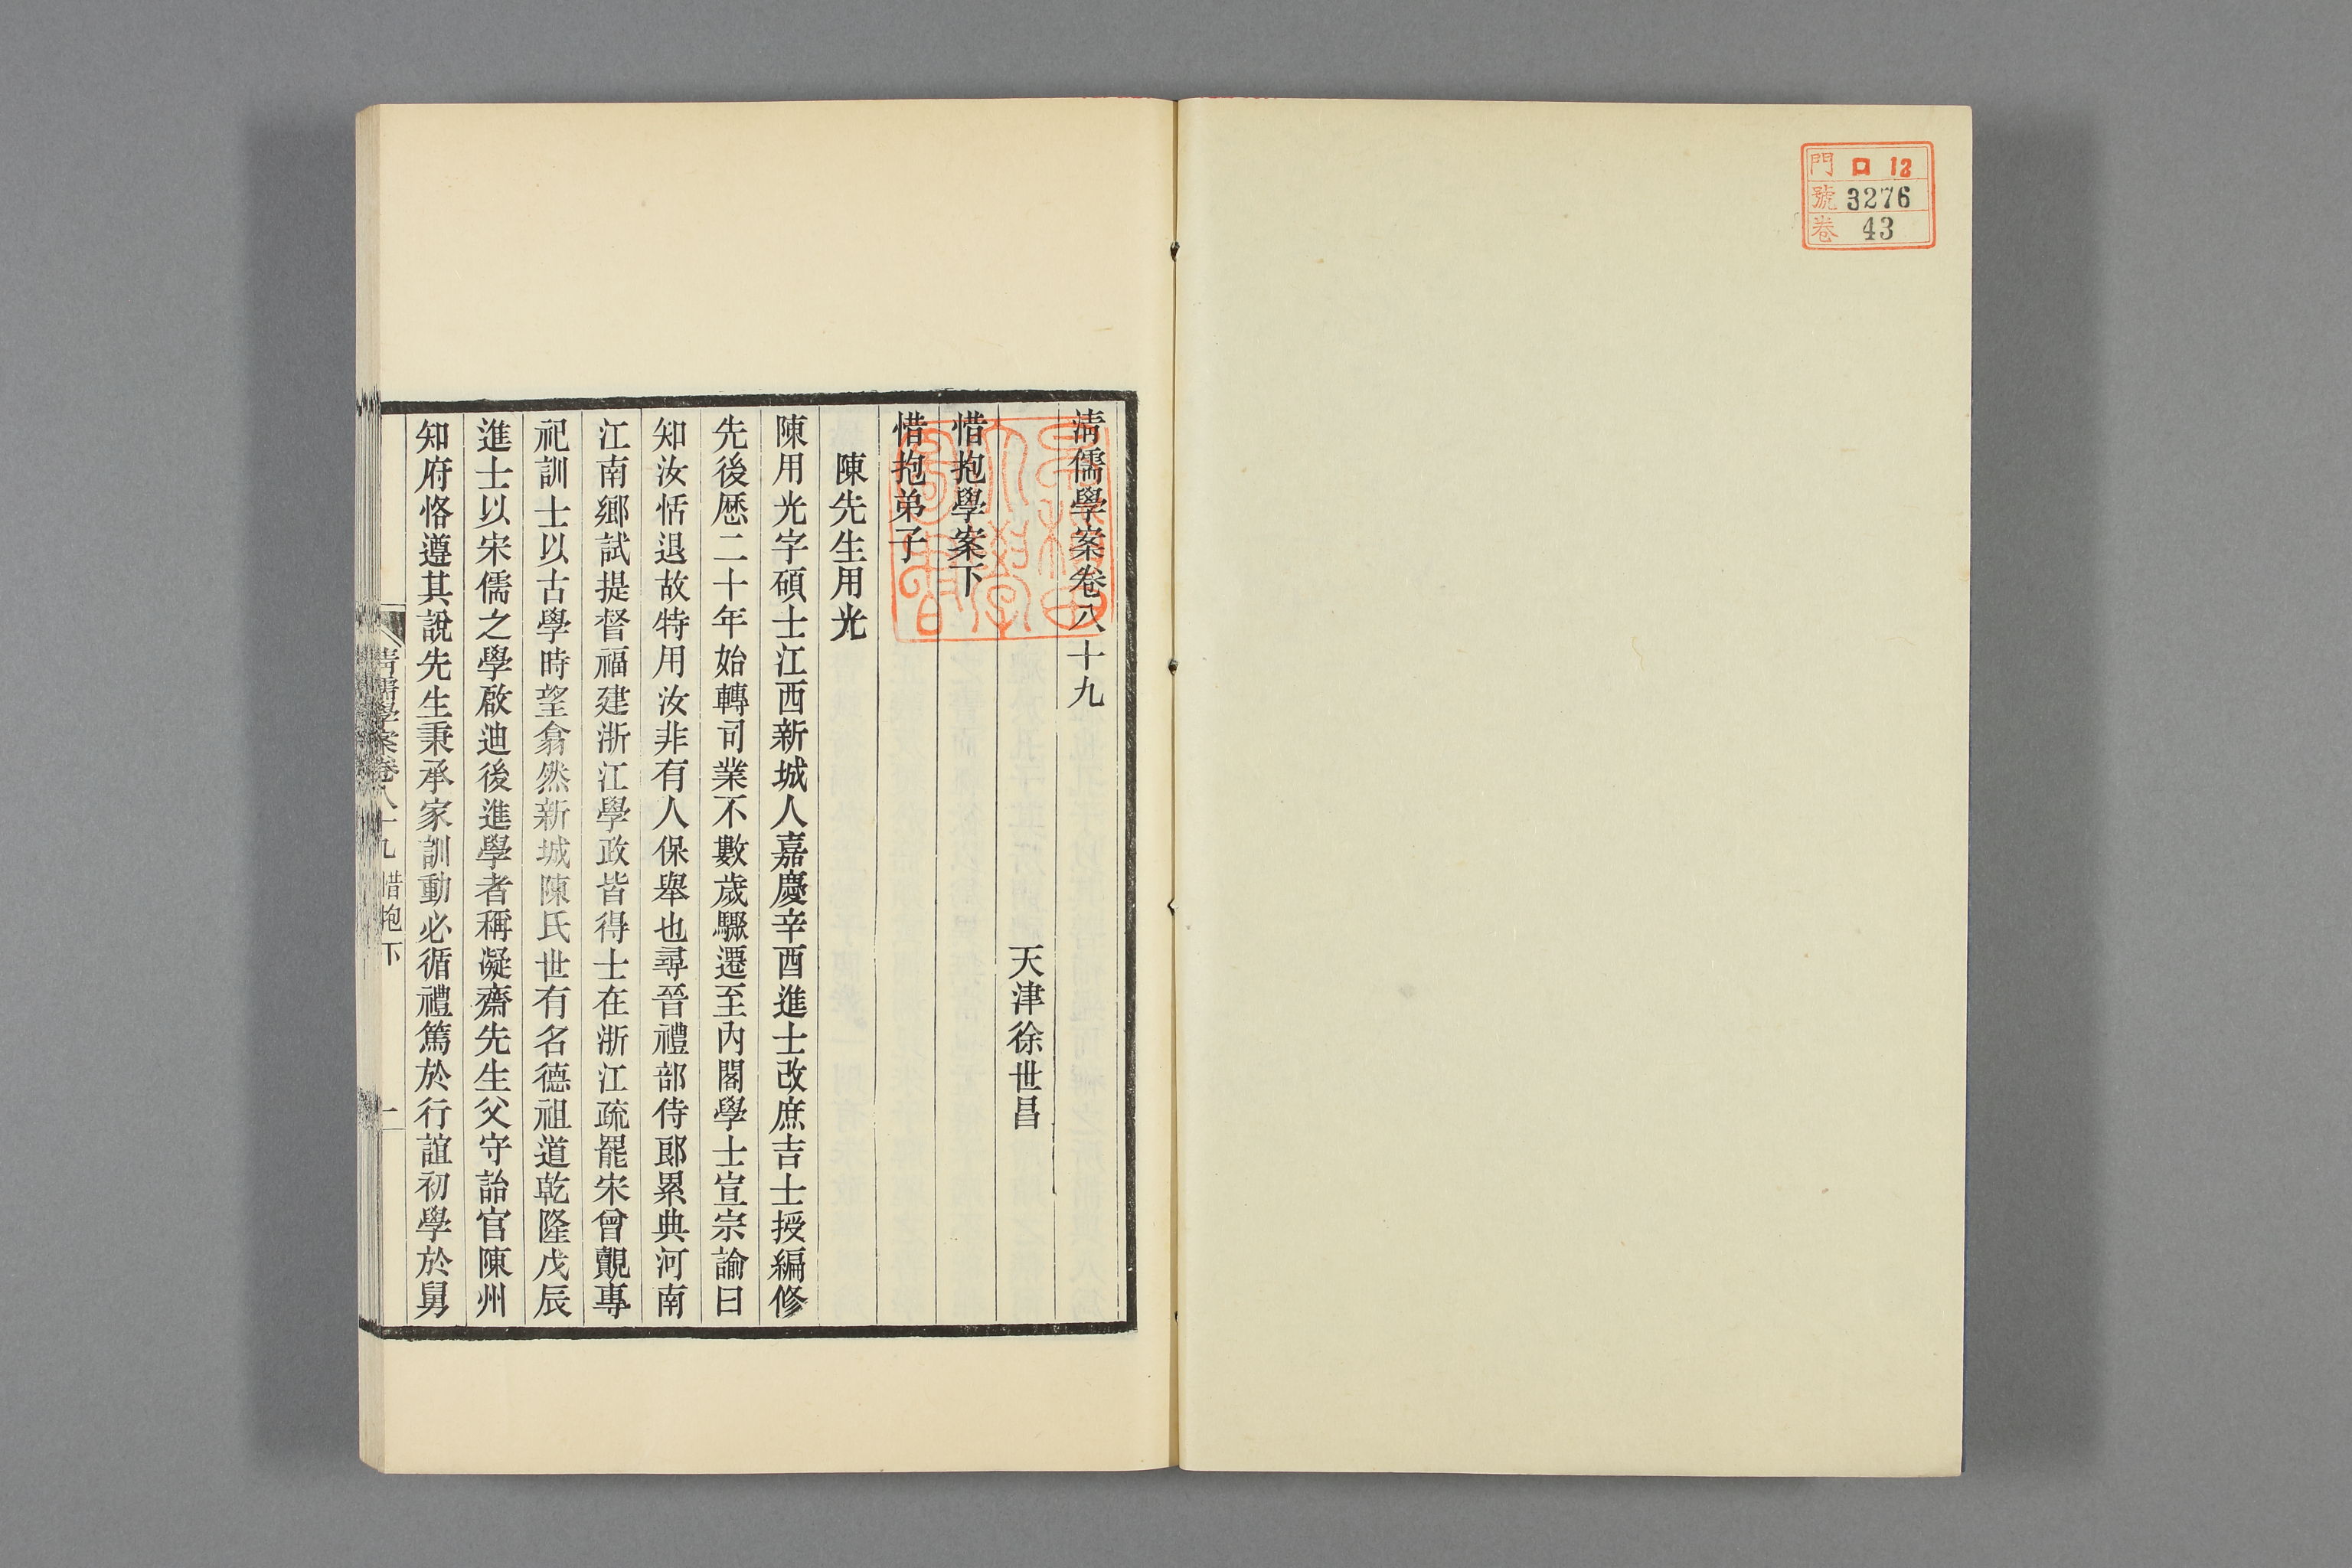 門 ロ 12
號 3276
卷 43
清儒學案卷八十九
天津徐世昌
惜抱學案下
惜抱弟子
陳先生用光
陳用光字碩士江西新城人嘉慶辛酉進士改庶吉士授編修
先後歷二十年始轉司業不數歲驟遷至內閣學士宣宗諭曰
知汝恬退故特用汝非有人保舉也尋晉禮部侍郎累典河南
江南鄉試提督福建浙江學政皆得士在浙江疏罷宋曾覿專
祀訓士以古學時望翕然新城陳氏世有名德祖道乾隆戊辰
進士以宋儒之學啟迪後進學者稱凝齋先生父守詒官陳州
知府恪遵其說先生秉承家訓動必循禮篤於行誼初學於舅
清儒學案卷八十九 惜抱下 一
早稻田大學圖書